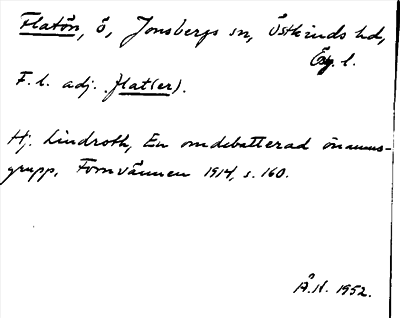 Flatön, ö, Jonsbergs sn, Östkinds hd,
Ög. l.
F. l. adj. flat(er).
Hj. Lindroth, En omdebatterad önamns-
grupp, Fornvännen 1914, s. 160.
Å.N. 1952.